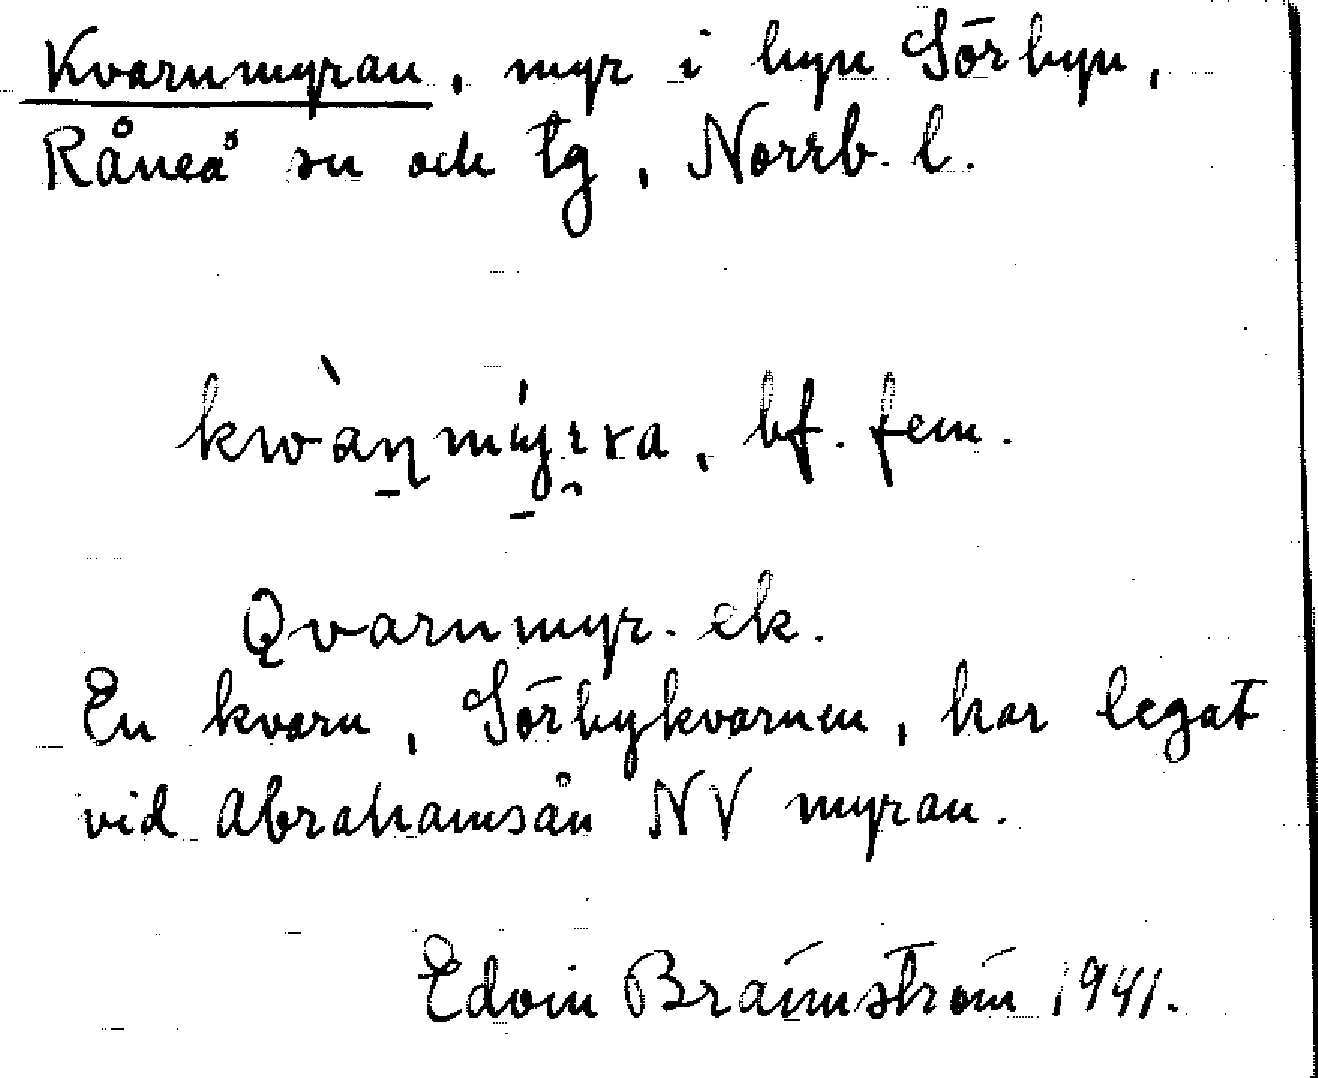 Kvarnmyran, myr i byn Sörbyn,
Råneå sn och tg, Norrb. l.
bf. fem.
Qvarnmyr. ek.
En kvarn, Sörbykvarnen, har legat
vid Abrahamsån NV myran.
Edvin Brännström 1941.